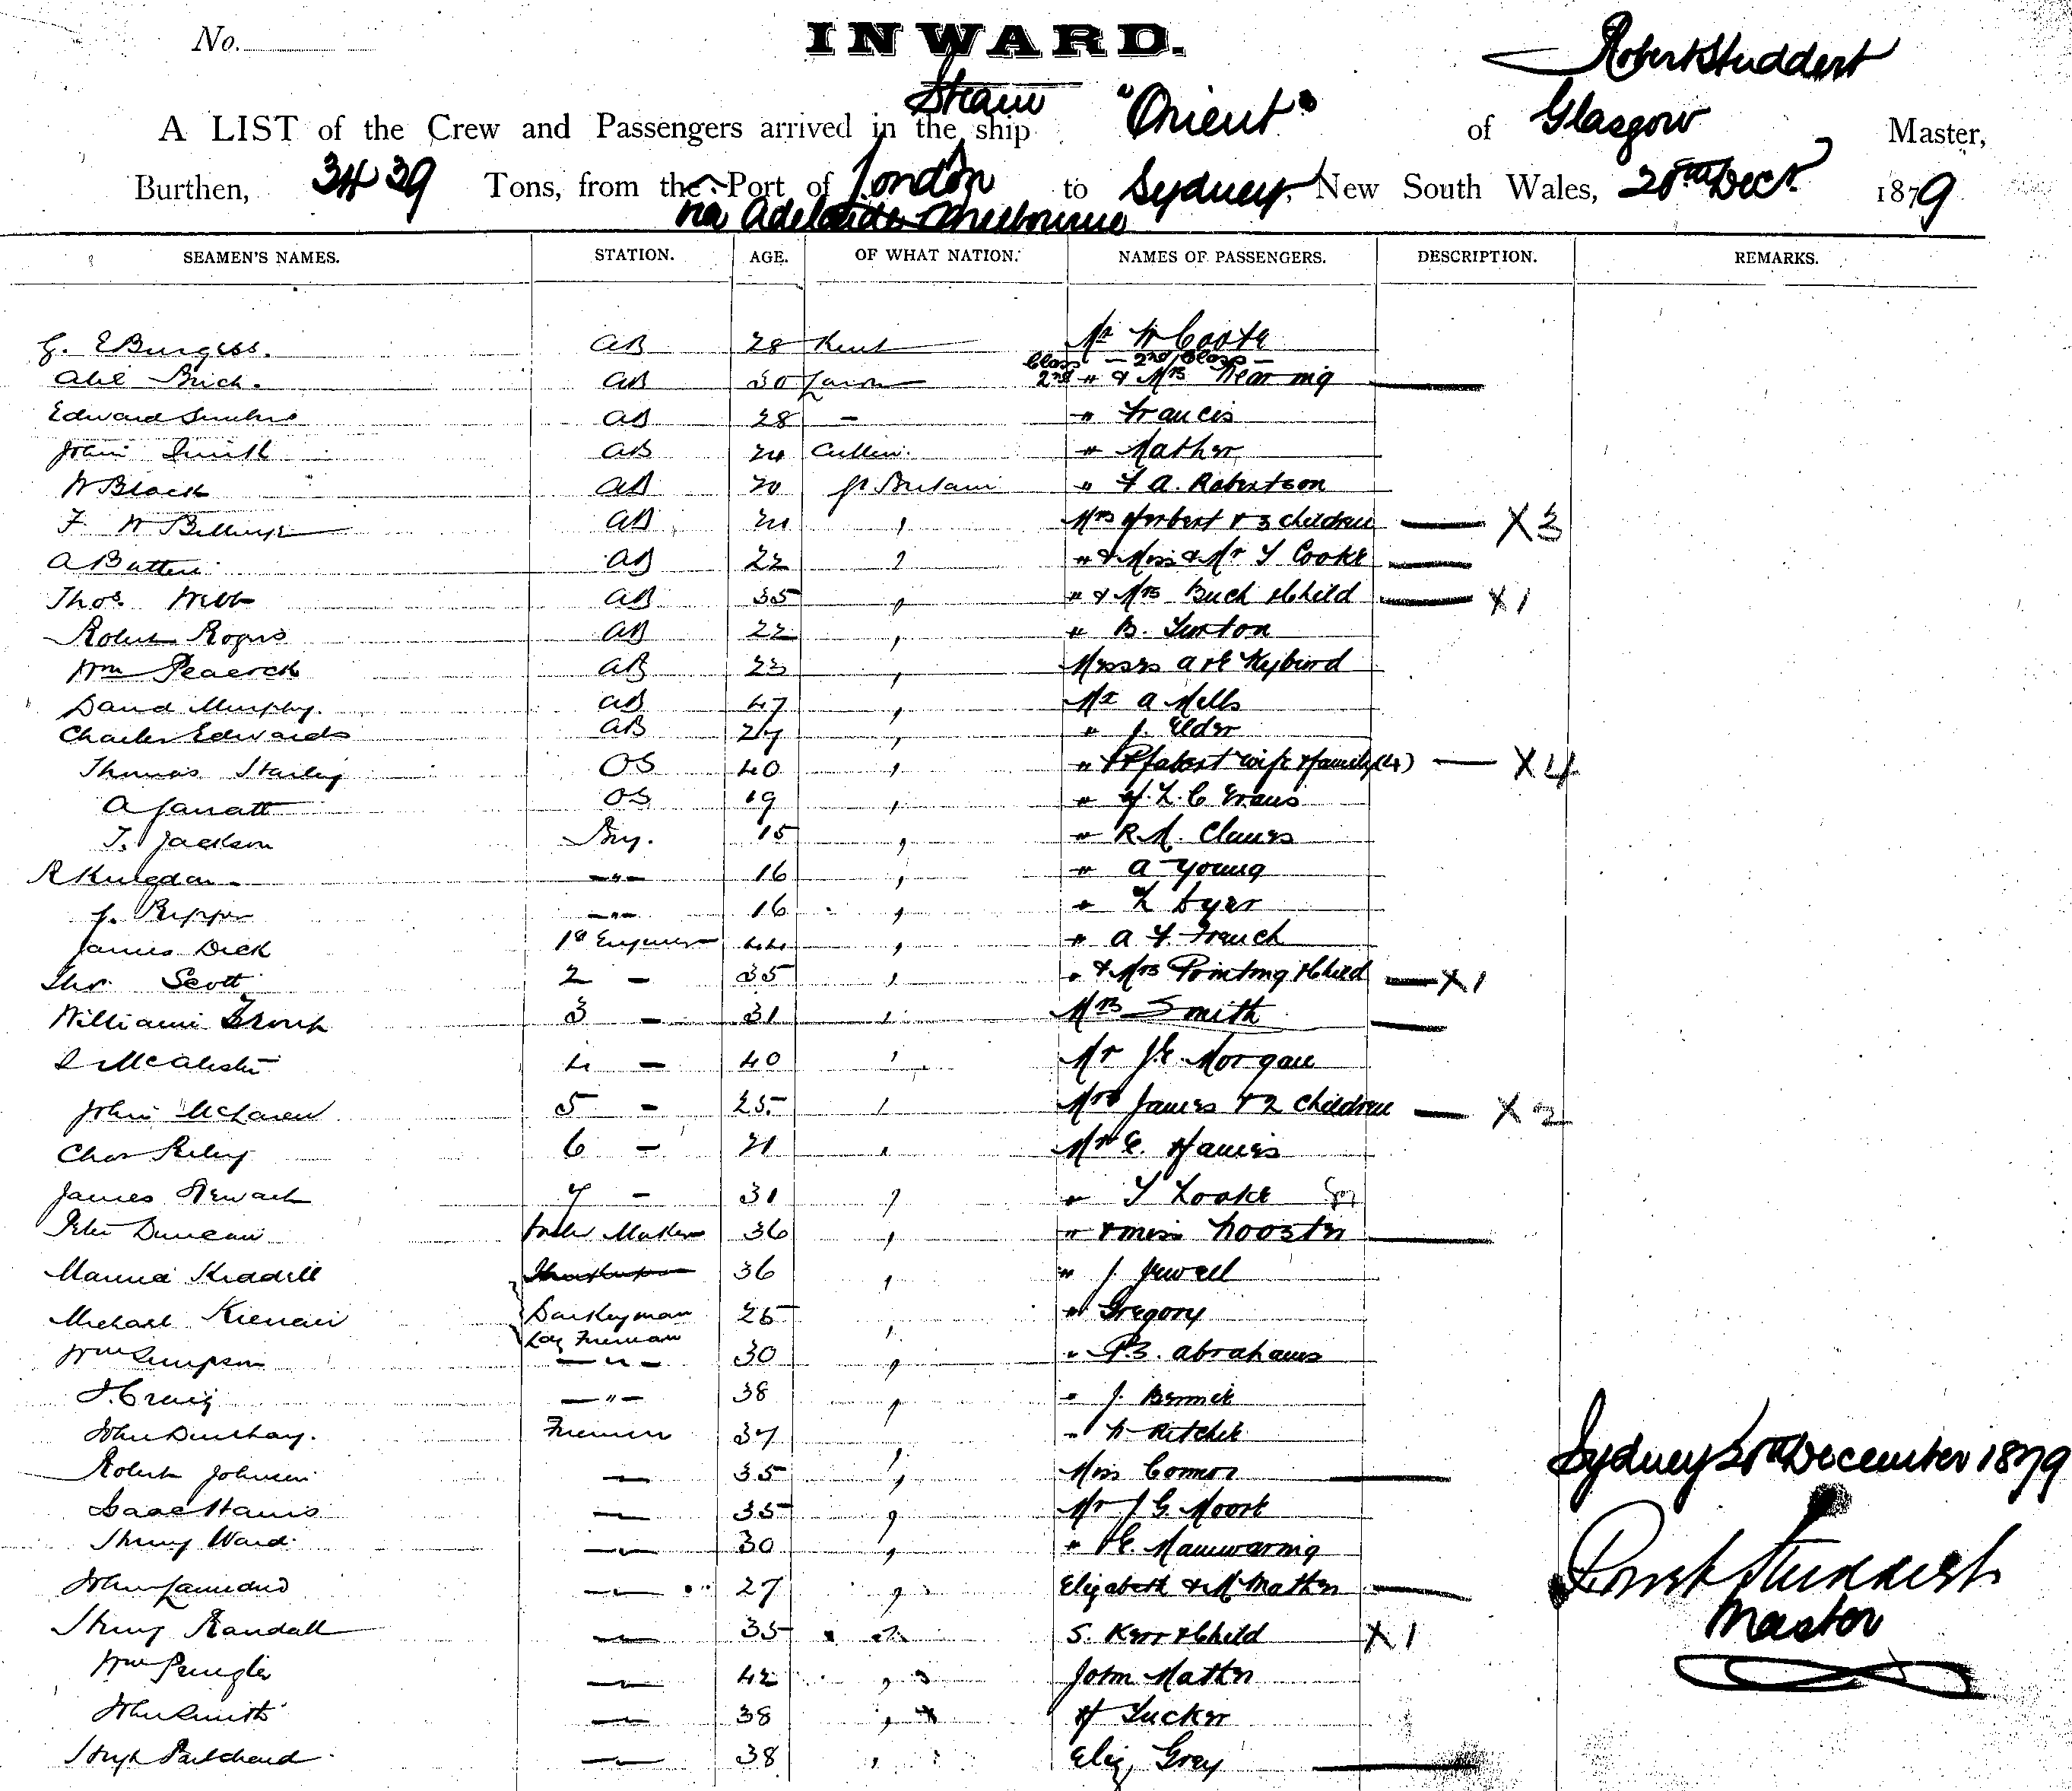 No.
INWARD.
Robert Studdert
Steam
A LIST of the Crew and Passengers arrived in the ship "Orient" of Glasgow Master,
Burthen, 3439 Tons, from the Port of London to Sydney, New South Wales, 20th Decr 1879
via Adelaide Melbourne
SEAMEN'S NAMES. STATION. AGE. OF WHAT NATION. NAMES OF PASSENGERS. DESCRIPTION. REMARKS.
G. E Burgess. AB 28 Kent Mr W Coote
Class — 2nd Class —
AB 30 2nd " & Mrs
Edward AB 28 - " Francis
John Smith AB 24 Cullen " Mather
W Black AB 20 Gt Britain " F A. Robertson
F W AB " Mrs Herbert & 3 children — X3
A AB 22 " " & Miss & Mr T Cooke —
Thos. Webb AB 35 " " & Mrs Buch & Child — X1
Robert Rogers AB 22 " " B. Turton
Wm Peacock AB 23 " Messrs A & E Kybird
David Murphy. AB 47 " Mr A Mells
Charles Edwards AB 27 " " J. Elder
Thomas OS 40 " " wife & family (4) — X4
A Garratt OS 19 " " H. L. C Evans
T. Jackson Boy. 15 " " R. M. Clauss
R —"— 16 " " A Young
J. Pepper —"— 16 " " L Dyer
James Dick 1st Engineer 44 " " A F French
Thos. Scott 2 - 35 " " & Mrs Pointing & Child — X1
William 3 - 31 " Mrs Smith —
4 - 40 " Mr J. E. Morgan
John McLaren 5 - 25 " Mrs James & 2 Children — X2
Chas Riley 6 - 21 " Mr E. Harris
James Stewart 7 - 31 " " T Looke
Peter Duncan 36 " " & Miss —
36 " " J Jewell
Michael Kiernan Donkeyman 25 " " Gregory
Ldg Fireman
Wm Simpson —"— 30 " " P. S. Abrahams
J. Craig —"— 38 " " J.
John Firemen 37 " " W Ritchie
Robert Johnson — 35 " Miss Connor —
Isaac Harris — 35 " Mr J G. Moore
Henry Ward — 30 " " E. Mainwaring
John — 27 " Elizabeth & M Mather —
Henry Randall — 35 " S. Kerr & Child X1
Wm — 42 " John Mather
John Smith — 38 " H Tucker
Hugh Pritchard — 38 " Eliz Gray —
Sydney 20th December 1879
Robert Studdert
Master